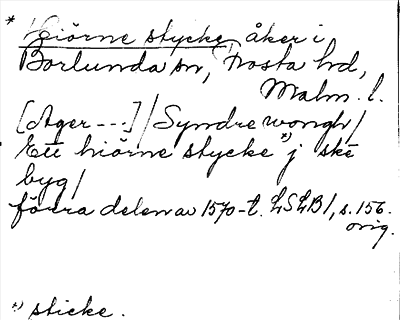 * Hiörne stycke, åker i
Borlunda sn, Frosta hd,
Malm. l.
[Ager ---] / Syndre wongh /
Ett hiörne stycke *) j ske
byg /
förra delen av 1570-t. LSLB 1, s. 156.
orig.
*) sticke.